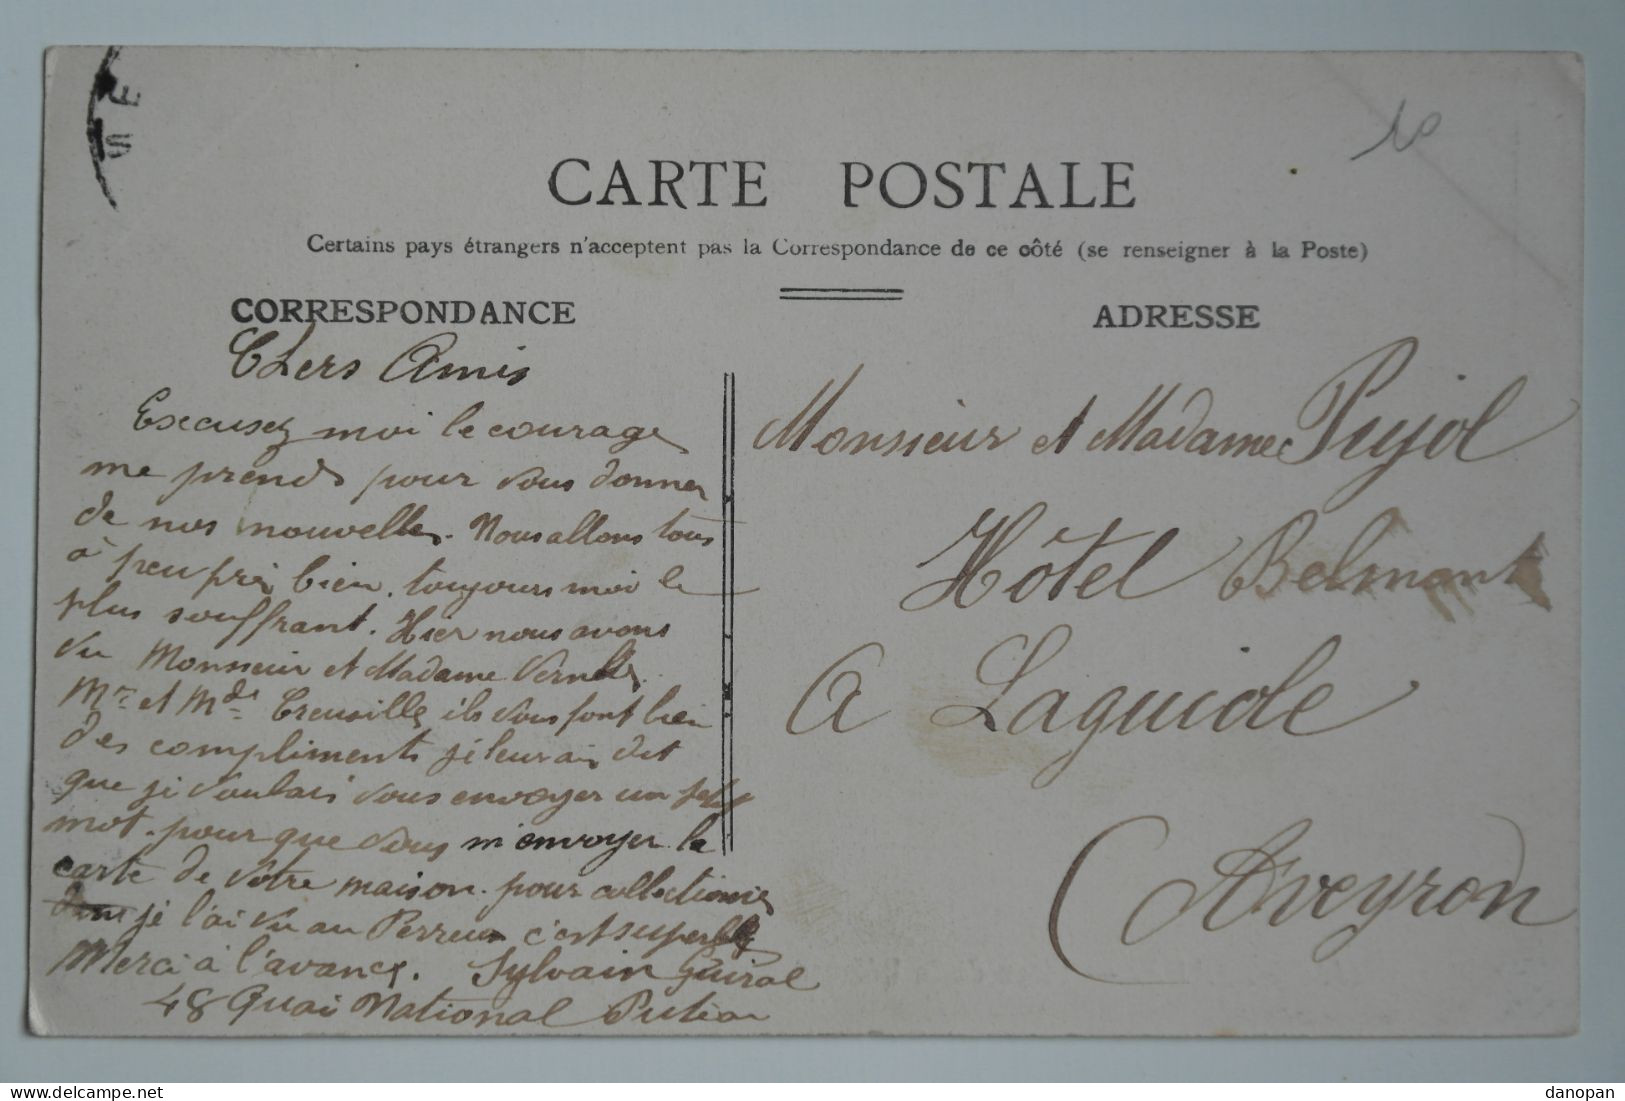 10
CARTE POSTALE
Certains pays étrangers n'acceptent pas la Correspondance de ce côté (se renseigner à la Poste)
CORRESPONDANCE
Chers Amis
Excusez moi le courage
me prends pour vous donner
de nos nouvelles. Nous allons tous
à peu près bien. toujours moi le
plus souffrant. Hier nous avons
vu Monsieur et Madame
Mr et Mde ils vous font bien
des compliments je leur ai dit
que je voulais vous envoyer un petit
mot. pour que vous m'envoyer la
carte de votre maison. pour collectionner
je l'ai vu au Perreux c'est superbe
Merci à l'avance. Sylvain Guiral
48 Quai National Puteau
ADRESSE
Monsieur et Madame Pujol
Hôtel Belmont
A Laguiole
(Aveyron)
Delcampe.net
danopan